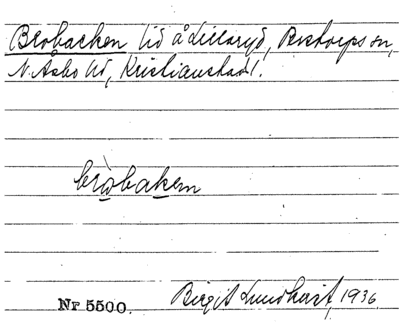 Brobacken lid å Lillaryd, Perstorps sn,
N. Åsbo hd, Kristianstads l.
bròbaken
Nr 5500. Birgit Lundkvist, 1936.